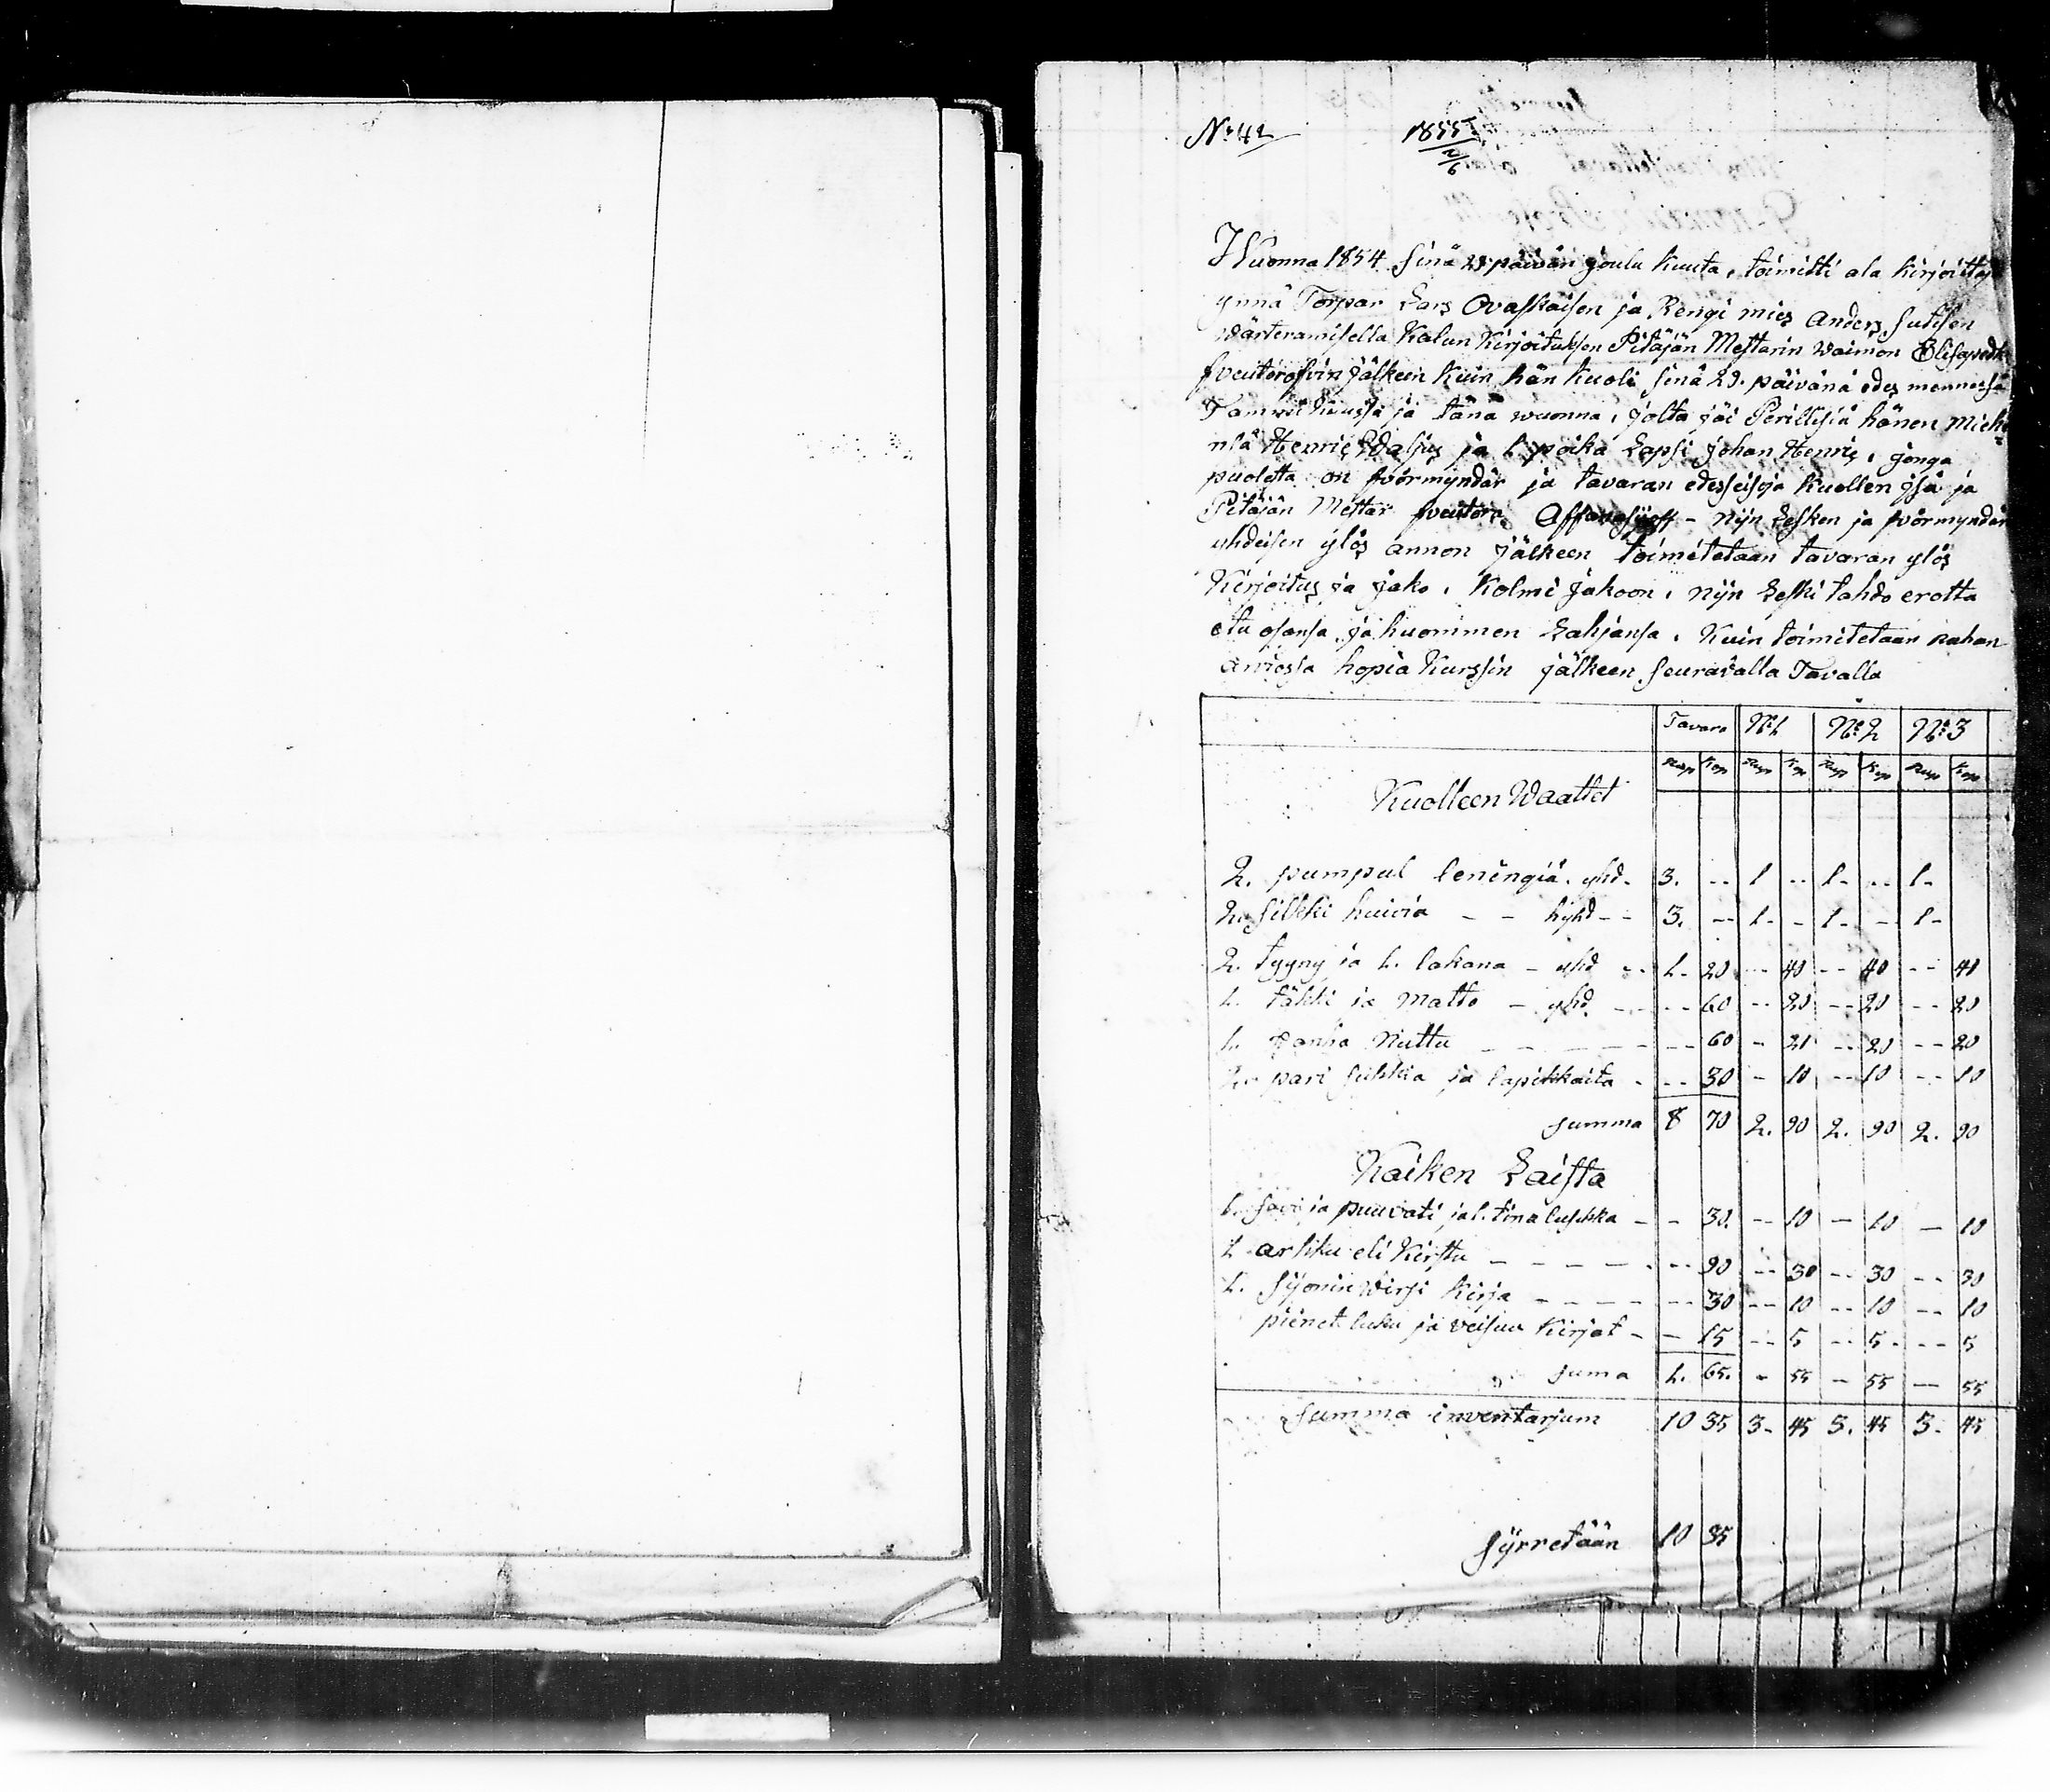 No 42 1855 2/6
Wuonna 1854 Sinä 29 päivän joulu kuuta, toimitti ala kirjoittaj
ynnä Torpar Lars Ovaskaisen ja Rengi mies Anders Sutisen
Wärteramisella Kalun Kirjoituksen Pitäjän Mestarin Waimon Elisapedt
jälkeen Kuin hän kuoli Sinä 29. päivänä edes mennessä
Tammi kuussa ja tänä wuonna, jolta jäi Perillisiä hänen Miehe
nsä Henric ja 1 poika Lapsi Johan Henric, jonga
puolesta on förmyndär ja tavaran edesseisoja Kuollen jsä ja
Pitäjän Mestar Affanasjeff - nijn Lesken ja förmyndär
yhdeisen ylös annon jälkeen toimitetaan tavaran ylös
Kirjoitus ja jako, Kolmi jakoon, nijn Leski tahdo erotta
etu osansa ja huommen Lahjansa, Kuin toimitetaan rahan
arviossa hopia Kurssin jälkeen Seuravalla Tavalla
Tavara No 1 No 2 No 3
Rup Kop Rup Kop Rup Kop Rup Kop
Kuolleen Waattet
2. pumpul leningiä. yhd. 3. -- 1 -- 1- -- 1-
2. Silkki huivia - - hyhd - - 3. -- 1- - 1- -- 1-
2. tyyny ja 1. lakana - yhd -- 1- 20 -- 40 -- 40 -- 40
1. täkki ja matto - yhd. - - -- 60 -- 20 -- 20 -- 20
1. vanha Nuttu - - - - - -- 60 - 20 -- 20 -- 20
2. pari sukkia ja lapikkaita - -- 30 - 10 -- 10 -- 10
Summa 8 70 2. 90 2. 90 2. 90
Kaiken Laista
1. Savi ja puuvati ja 1. tina lusikka - - 30. -- 10 - 10 - 10
1 arkku eli Kirstu - - - - - -- 90 -- 30 -- 30 -- 30
1. Sijonin Wirsi Kirja - - - - -- 30 -- 10 -- 10 -- 10
pienet luku ja veisuu Kirjat - - 15 -- 5 -- 5- -- 5
Suma 1. 65. - 55 - 55 - 55
Summa inventarjum 10 35 3- 45 3. 45 3- 45
Sijrretään 10 35